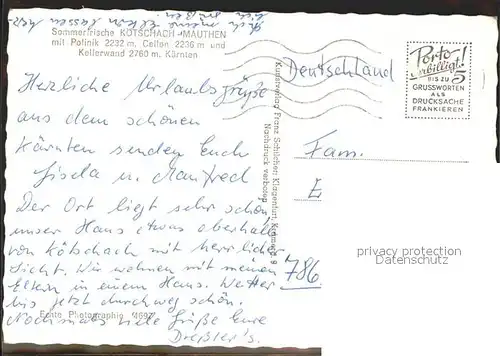 Auch meine Eltern lassen
Sie grüßen.
Sommerfrische KÖTSCHACH-MAUTHEN
mit Polinik 2232 m, Cellon 2236 m und
Kellerwand 2760 m. Kärnten
Herzliche Urlaubsgrüße
aus dem schönen
Kärnten senden Euch
Gisela u. Manfred
Der Ort liegt sehr schön
unser Haus etwas oberhalb
von Kötschach mit herrlicher
Sicht. Wir wohnen mit meinen
Eltern in einem Haus. Wetter
bis jetzt durchweg schön.
Nochmals viele Grüße Eure
Dreßler's.
Echte Photographie 4697
Kunstverlag Franz Schilcher, Klagenfurt,
Nachdruck verboten
Deutschland
Porto
verbilligt!
BIS ZU 5
GRUSSWORTEN
ALS
DRUCKSACHE
FRANKIEREN
Fam.
E
786
privacy protection
Datenschutz